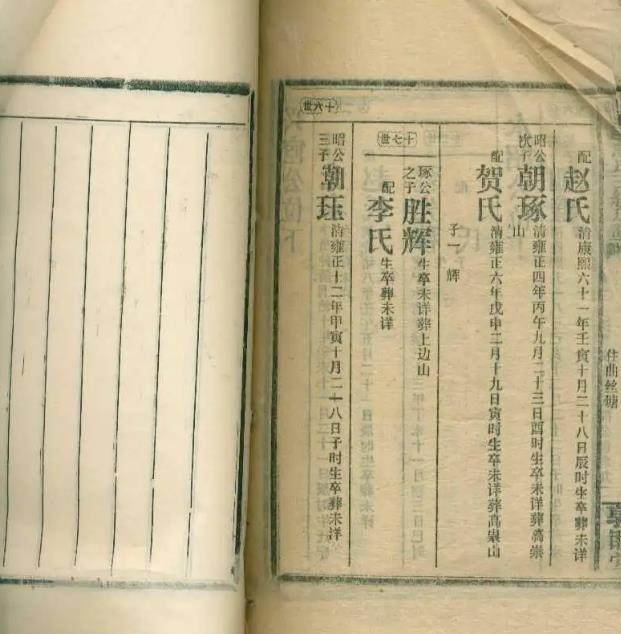 配赵氏清康熙六十一年壬寅十月二十八日辰时生卒葬未详
昭公次子朝琢清雍正四年丙午九月二十三日酉时生卒未详葬高崇山
配贺氏清雍正六年戊申二月十九日寅时生卒未详葬高崇山
子一辉
十七世
琢公之子胜辉生卒未详葬上边山
配李氏生卒葬未详
十六世
昭公三子朝珏清雍正十二年甲寅十月二十八日子时生卒葬未详
住曲丝塘